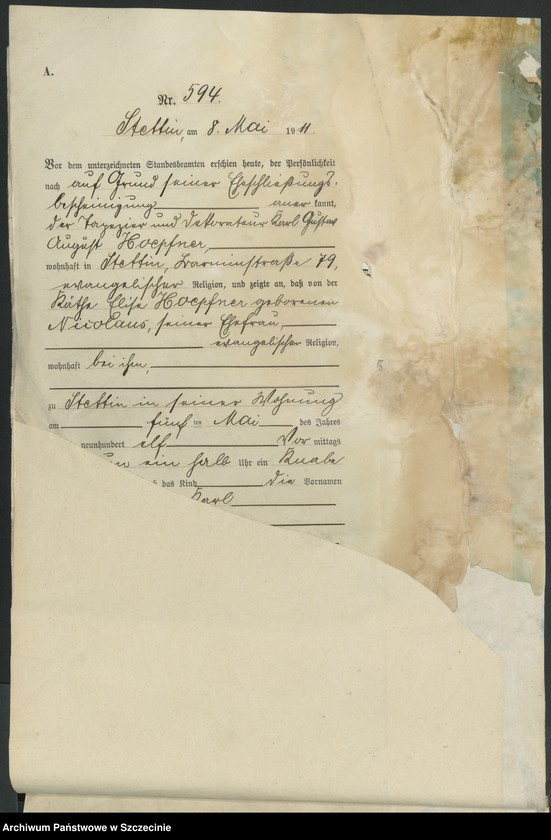 A.
Nr. 594.
Stettin, am 8. Mai 1911.
Vor dem unterzeichneten Standesbeamten erschien heute, der Persönlichkeit
nach auf Grund seiner Eheschließungs-
bescheinigung anerkannt,
der Tapezier und Dekorateur Karl Gustav
August Hoepfner,
wohnhaft in Stettin, Barnimstraße 79,
evangelischer Religion, und zeigte an, daß von der
Käthe Elise Hoepfner geborenen
Nicolaus, seiner Ehefrau,
evangelischer Religion,
wohnhaft bei ihm,
zu Stettin in seiner Wohnung
am fünften Mai des Jahres
neunhundert elf Vormittags
ein halb Uhr ein Knabe
das Kind die Vornamen
Karl
Archiwum Państwowe w Szczecinie